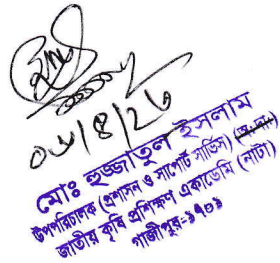 ০৬/৪/২৬
মোঃ হুজ্জাতুল ইসলাম
উপপরিচালক (প্রশাসন ও সাপোর্ট সার্ভিস) (অ.দা.)
জাতীয় কৃষি প্রশিক্ষণ একাডেমি (নাটা)
গাজীপুর-১৭০১